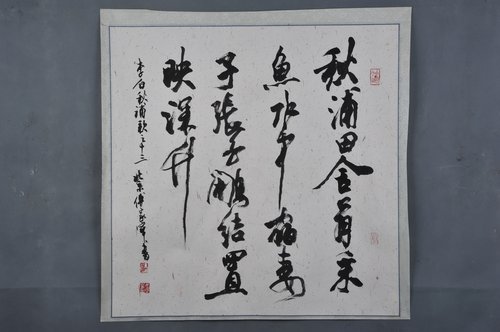 秋浦田舍翁采
魚水中宿妻
子張白鷳結罝
映深竹
李白秋浦歌之十三